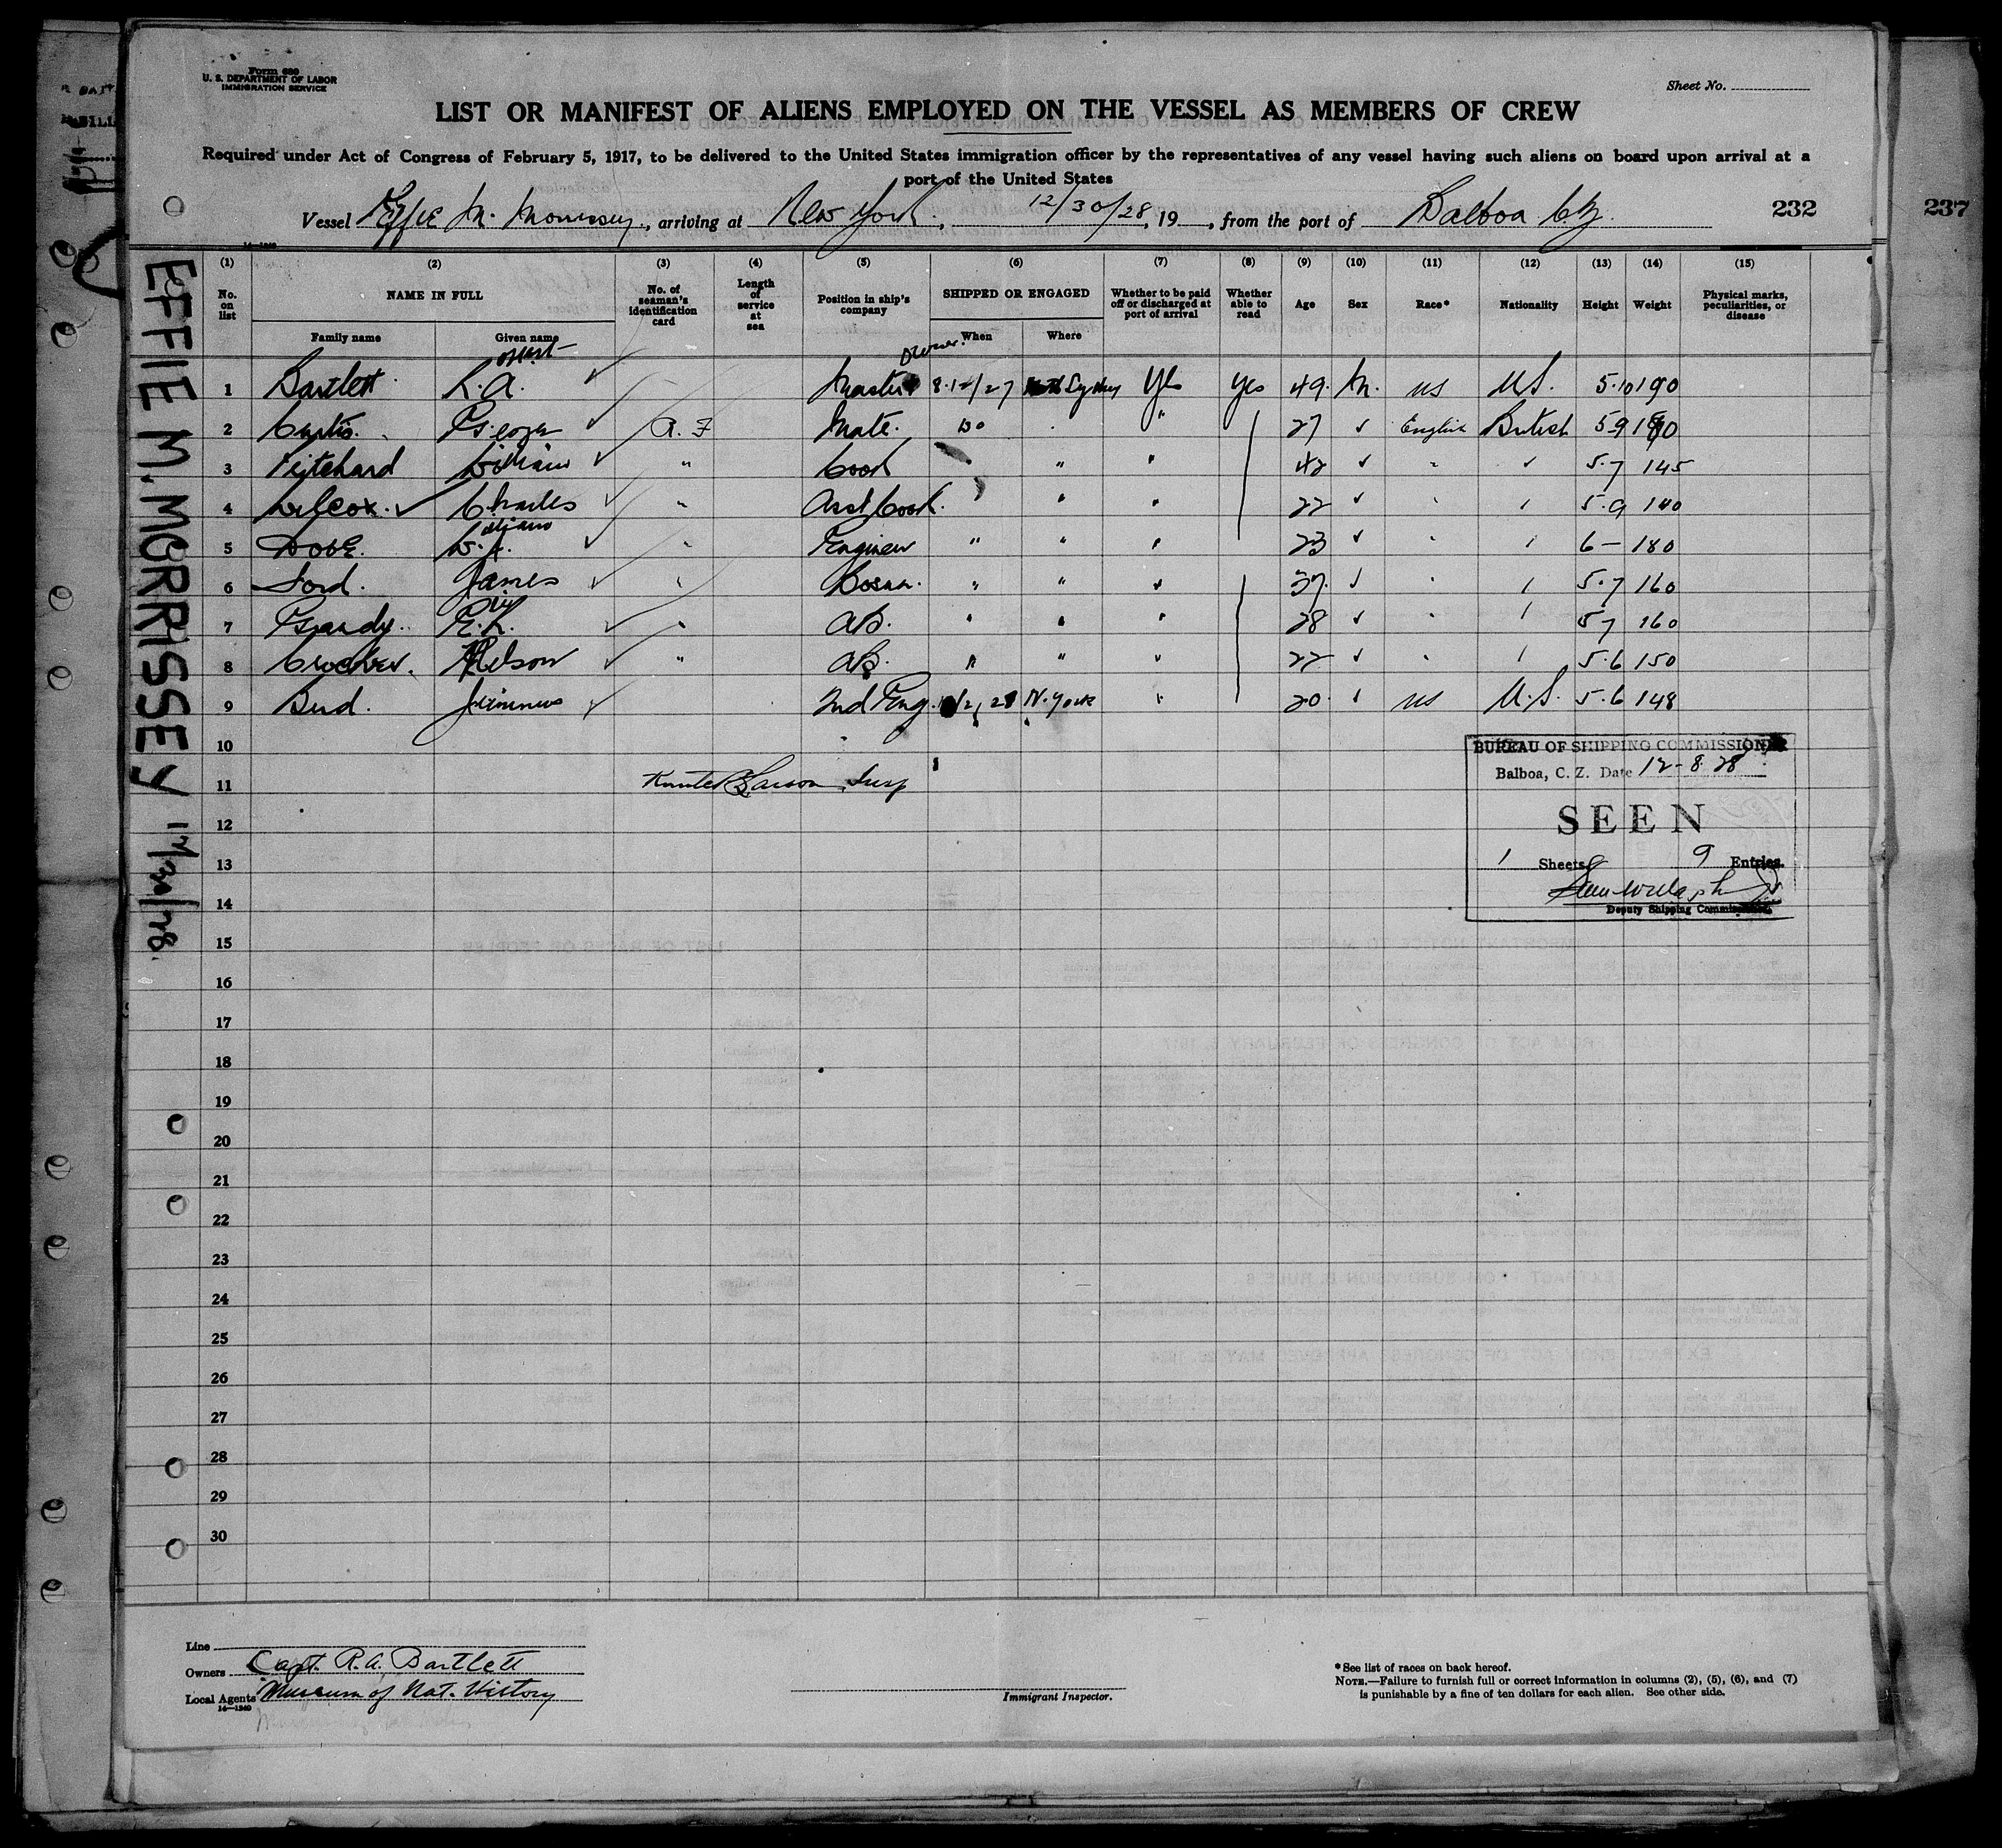 Form 680
U. S. DEPARTMENT OF LABOR
IMMIGRATION SERVICE
Sheet No.
LIST OR MANIFEST OF ALIENS EMPLOYED ON THE VESSEL AS MEMBERS OF CREW
Required under Act of Congress of February 5, 1917, to be delivered to the United States immigration officer by the representatives of any vessel having such aliens on board upon arrival at a
port of the United States
Vessel Effie M. Morrissey, arriving at New York, 12/30/28, 19, from the port of Balboa CZ
232
237
EFFIE M. MORRISSEY 12/30/28.
(1) (2) (3) (4) (5) (6) (7) (8) (9) (10) (11) (12) (13) (14) (15)
No. on list NAME IN FULL No. of seaman's identification card Length of service at sea Position in ship's company SHIPPED OR ENGAGED Whether to be paid off or discharged at port of arrival Whether able to read Age Sex Race* Nationality Height Weight Physical marks, peculiarities, or disease
Family name Given name When Where
Owner
1 Bartlett R.A. ✓ Master 8.12/27 Sydney Yes Yes 49 M. US U.S. 5.10 190
2 Curtis. George ✓ A. F Mate. Do " 27 ✓ English British 5-9
3 Pritchard William ✓ " Cook " " 42 ✓ " ✓ 5.7 145
4 Wilcox. ✓ Charles ✓ " Asst Cook. " " " 22 ✓ " " 5.9 140
5 Dove. W. J. ✓ " Engineer " " " 23 ✓ " " 6 — 180
6 Ford. James ✓ " Bosun. " " " 37 ✓ " " 5.7 160
7 Grandy. E.R. ✓ " AB. " " " 28 ✓ " " 5 7 160
8 Crocker. Nelson ✓ " AB. " " " 22 ✓ " " 5.6 150
9 Bird. Jimmie ✓ 2nd Eng. 28 N. York " 20 " US U.S. 5.6 148
10
11 Larson, Insp
12
13
14
15
16
17
18
19
20
21
22
23
24
25
26
27
28
29
30
BUREAU OF SHIPPING COMMISSIONER
Balboa, C. Z. Date 12-8-28
SEEN
1 Sheets 9 Entries.
Deputy Shipping Commissioner.
Line
Owners Capt. R.A. Bartlett
Local Agents Museum of Nat. History
14—1240
Immigrant Inspector.
*See list of races on back hereof.
NOTE.—Failure to furnish full or correct information in columns (2), (5), (6), and (7)
is punishable by a fine of ten dollars for each alien. See other side.